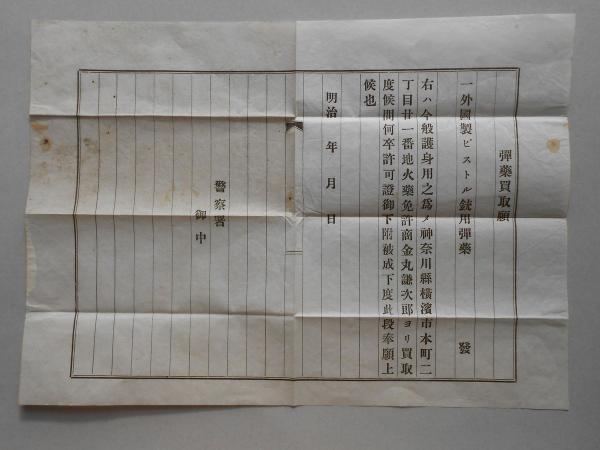 彈藥買取願
一外國製ピストル銃用彈藥 發
右ハ今般護身用之爲メ神奈川縣橫濱市本町二
丁目廿一番地火藥免許商金丸謙次郎ヨリ買取
度候間何卒許可證御下附被成下度此段奉願上
候也
明治 年 月 日
警察署
御中